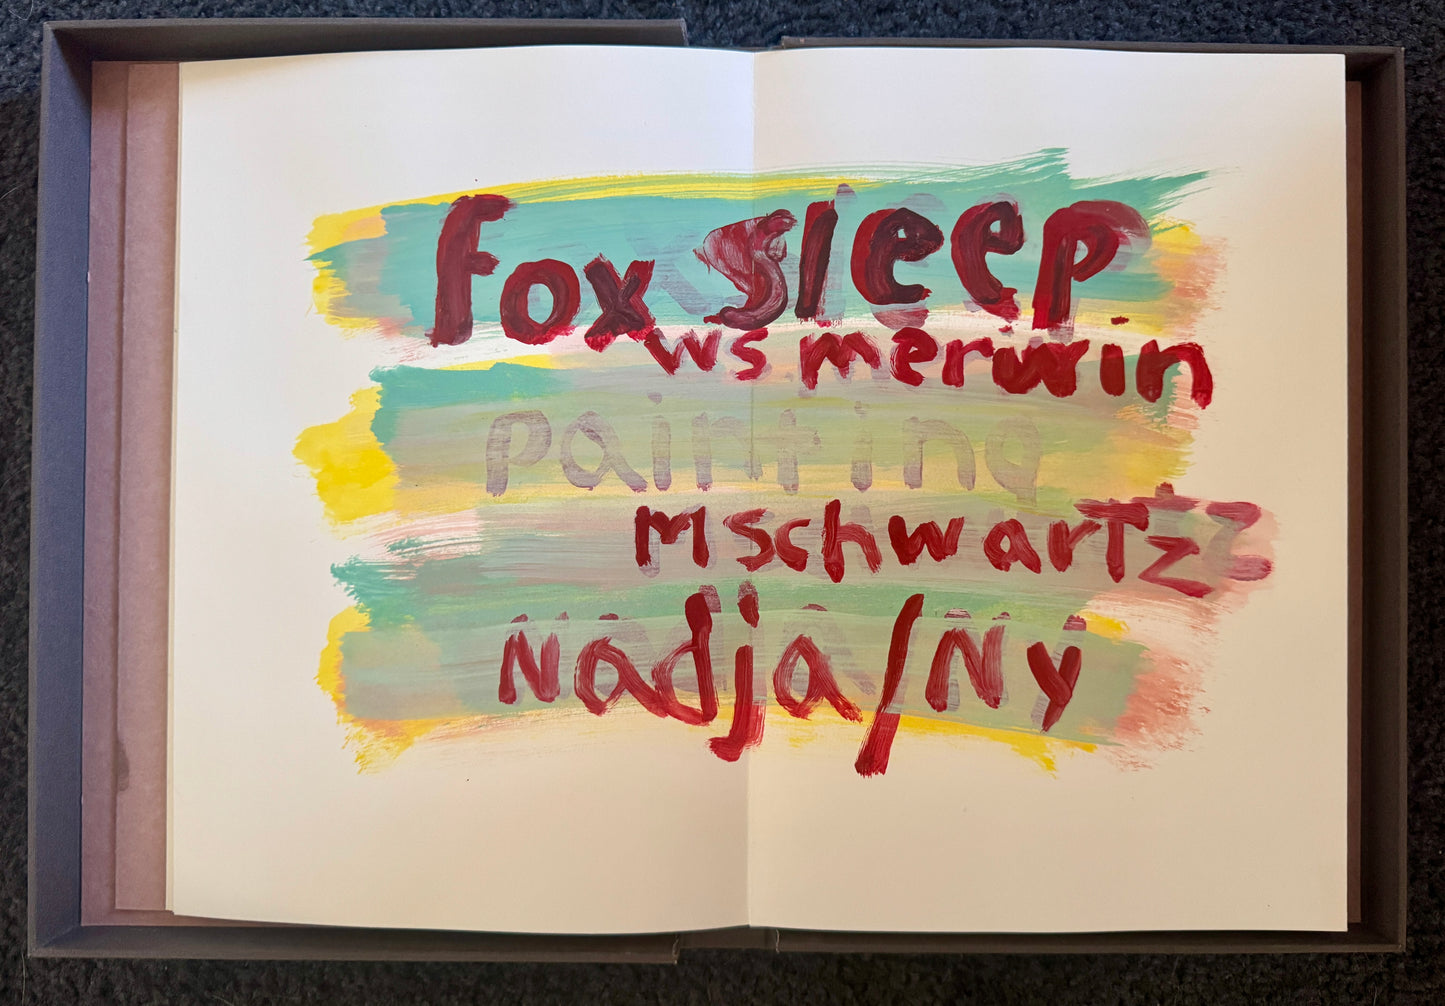 fox sleep
ws merwin
painting
mschwartz
Nadja/Ny